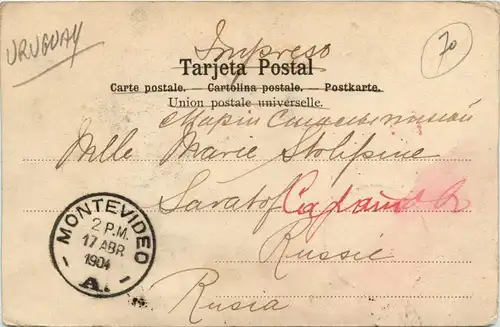 URUGUAY
70
Impreso
Tarjeta Postal
Carte postale. — Cartolina postale. — Postkarte.
Union postale universelle.
Марiи
Mlle Marie Stolipine
Saratof
Russie
Rusia
MONTEVIDEO
2 P.M.
17 ABR
1904
A.